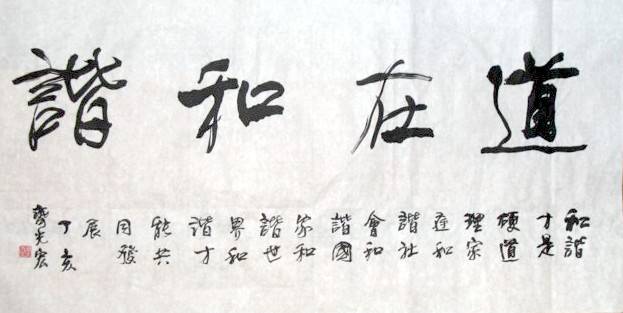 道在和諧
和諧
才是
硬道
理家
庭和
諧社
會和
諧國
家和
諧世
界和
諧才
能共
同發
展
丁亥